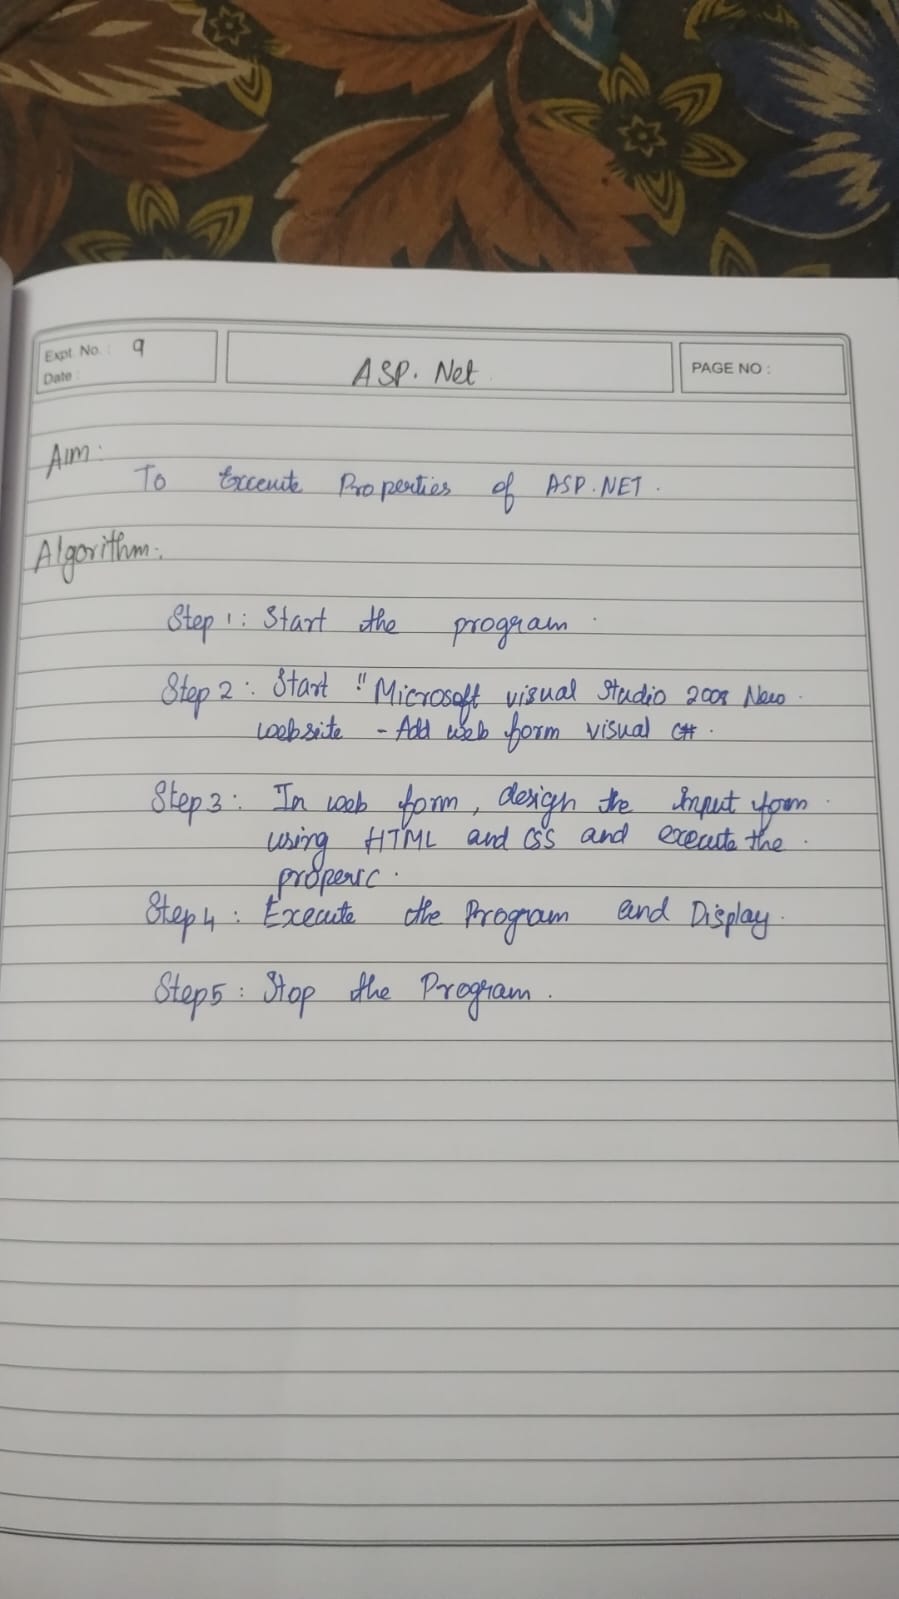 Expt. No. : 9
Date :
ASP. Net
PAGE NO :
Aim:
To Excecute Properties of ASP.NET.
Algorithm:
Step 1: Start the program
Step 2: Start "Microsoft visual Studio 2008 New
website - Add web form visual C#.
Step 3: In web form, design the Input form
using HTML and CSS and execute the
Step 4: Execute the Program and Display.
Step 5: Stop the Program.